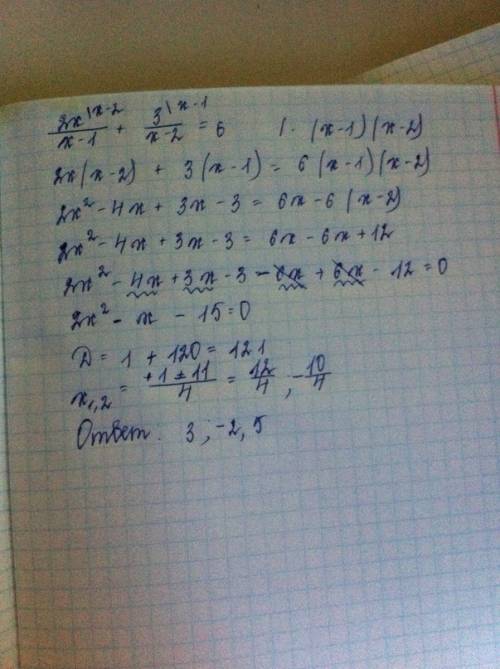 2x\x-2 / x-1 + 3\x-1 / x-2 = 6 | · (x-1)(x-2)
2x(x-2) + 3(x-1) = 6(x-1)(x-2)
2x² - 4x + 3x - 3 = 6x - 6(x-2)
2x² - 4x + 3x - 3 = 6x - 6x + 12
2x² - 4x + 3x - 3 - 6x + 6x - 12 = 0
2x² - x - 15 = 0
D = 1 + 120 = 121
x1,2 = +1 ± 11 / 4 = 12/4 , -10/4
Ответ. 3 ; -2,5